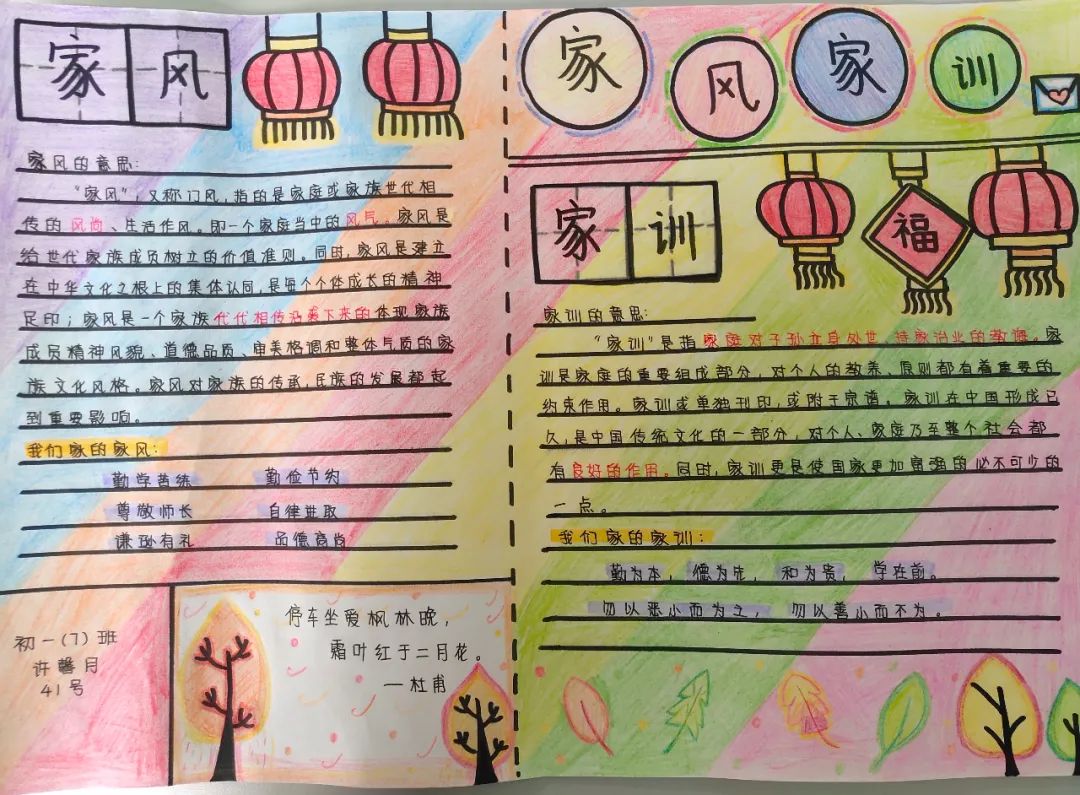 家风
家风的意思:
"家风",又称门风,指的是家庭或家族世代相
传的风尚、生活作风。即一个家庭当中的风气。家风是
给世代家族成员树立的价值准则。同时,家风是建立
在中华文化之根上的集体认同,是每个个体成长的精神
足印;家风是一个家族代代相传沿袭下来的体现家族
成员精神风貌、道德品质、审美格调和整体气质的家
族文化风格。家风对家族的传承,民族的发展都起
到重要影响。
我们家的家风:
勤学苦练 勤俭节约
尊敬师长 自律进取
谦逊有礼 品德高尚
初一(7)班
许馨月
41号
停车坐爱枫林晚,
霜叶红于二月花。
—杜甫
家风家训
家训
福
家训的意思:
"家训"是指家庭对子孙立身处世、持家治业的教诲。家
训是家庭的重要组成部分,对个人的教养、原则都有着重要的
约束作用。家训或单独刊印,或附于宗谱。家训在中国形成已
久,是中国传统文化的一部分,对个人、家庭乃至整个社会都
有良好的作用。同时,家训更是使国家更加富强的必不可少的
一点。
我们家的家训:
勤为本,德为先,和为贵,学在前。
勿以恶小而为之,勿以善小而不为。